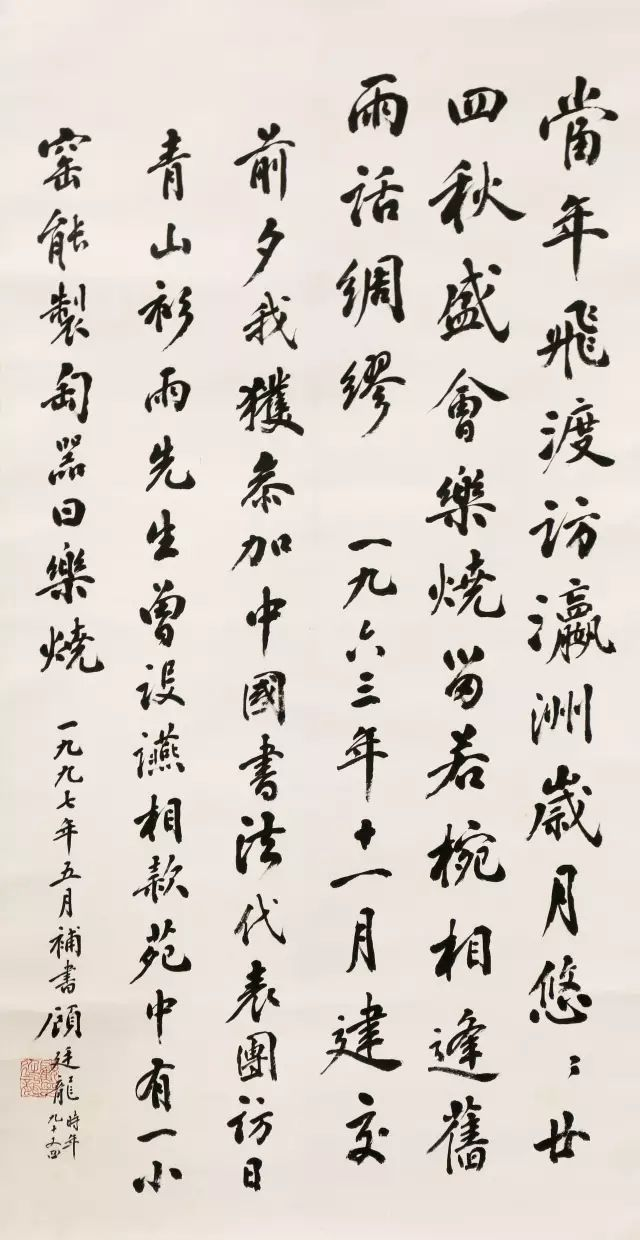 當年飛渡訪瀛洲歲月悠〻廿
四秋盛會樂燒留若椀相逢舊
雨話綢繆 一九六三年十一月建交
前夕我獲參加中國書法代表團訪日
青山衫雨先生曾設讌相款苑中有一小
窑能製匋器曰樂燒
一九九七年五月補書顧廷龍時年
九十又四